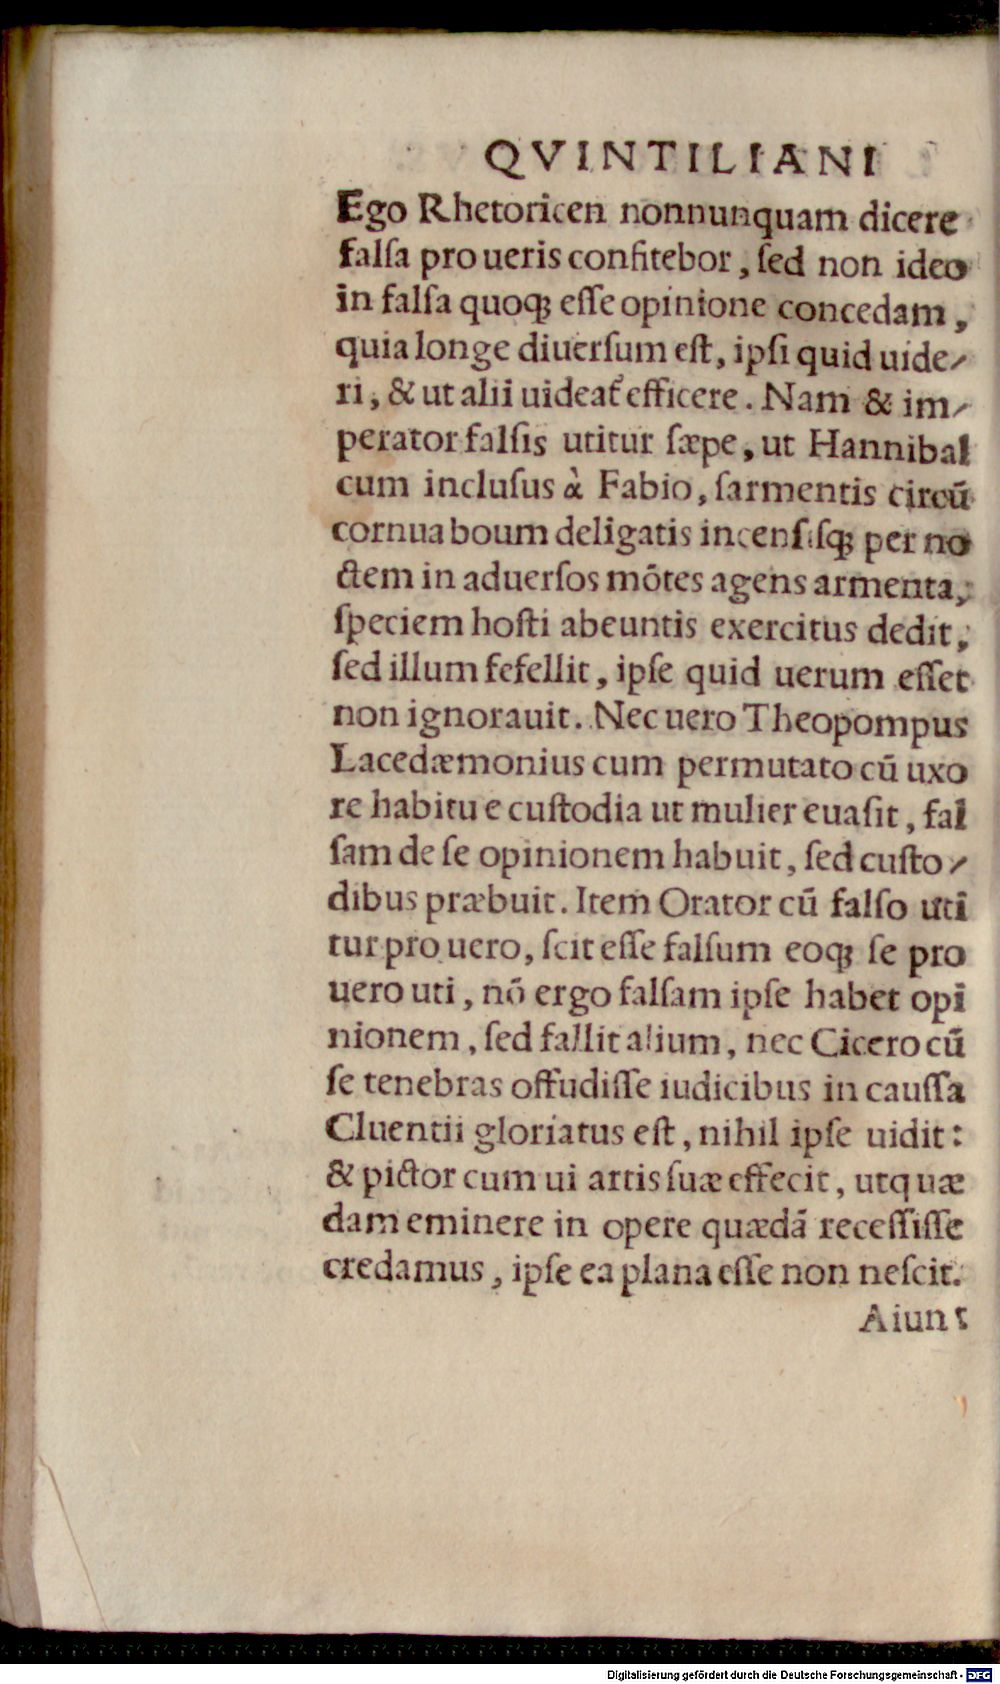 QVINTILIANI
Ego Rhetoricen nonnunquam dicere
falſa pro ueris confitebor, ſed non ideo
in falſa quoqꝫ eſſe opinione concedam,
quia longe diuerſum eſt, ipſi quid uide⸗
ri, & ut alii uideat᷑ efficere. Nam & im⸗
perator falſis utitur ſæpe, ut Hannibal
cum incluſus à Fabio, ſarmentis circū
cornua boum deligatis incenſiſqꝫ per no
ctem in aduerſos mōtes agens armenta,
ſpeciem hoſti abeuntis exercitus dedit,
ſed illum fefellit, ipſe quid uerum eſſet
non ignorauit. Nec uero Theopompus
Lacedæmonius cum permutato cū uxo
re habitu e cuſtodia ut mulier euaſit, fal
ſam de ſe opinionem habuit, ſed cuſto⸗
dibus præbuit. Item Orator cū falſo uti
tur pro uero, ſcit eſſe falſum eoqꝫ ſe pro
uero uti, nō ergo falſam ipſe habet opi
nionem, ſed fallit alium, nec Cicero cū
ſe tenebras offudiſſe iudicibus in cauſſa
Cluentii gloriatus eſt, nihil ipſe uidit:
& pictor cum ui artis ſuæ effecit, ut quæ
dam eminere in opere quædā receſſiſſe
credamus, ipſe ea plana eſſe non neſcit.
Aiunt
Digitalisierung gefördert durch die Deutsche Forschungsgemeinschaft - DFG